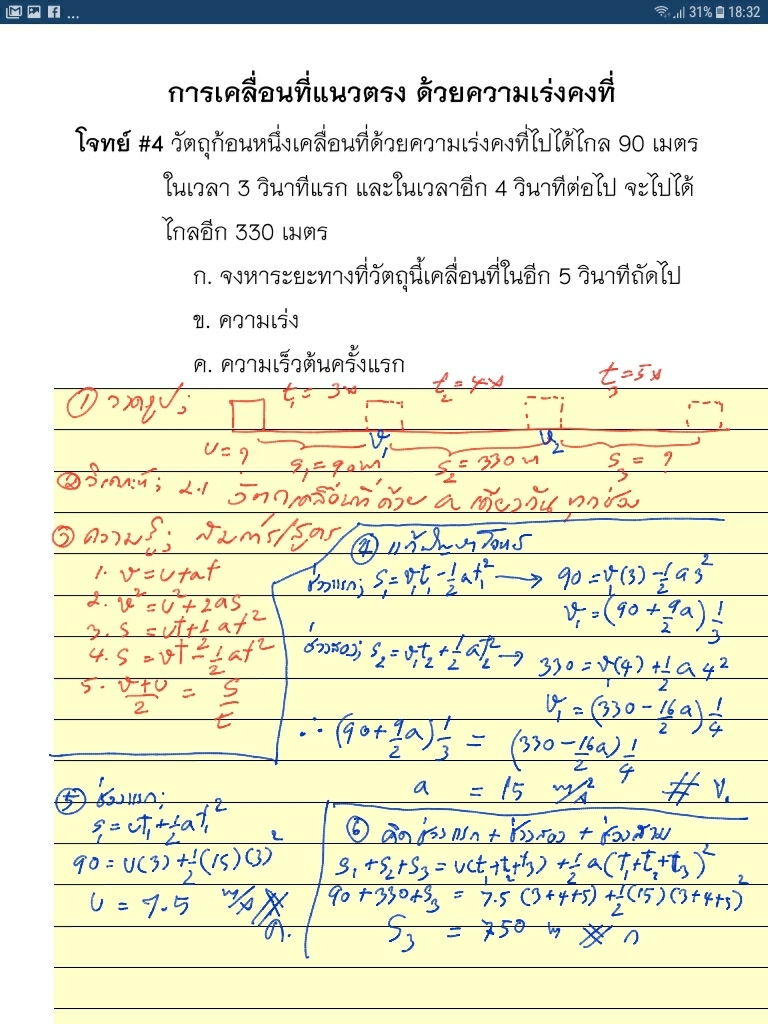 31% 18:32
การเคลื่อนที่แนวตรง ด้วยความเร่งคงที่
โจทย์ #4 วัตถุก้อนหนึ่งเคลื่อนที่ด้วยความเร่งคงที่ไปได้ไกล 90 เมตร
ในเวลา 3 วินาทีแรก และในเวลาอีก 4 วินาทีต่อไป จะไปได้
ไกลอีก 330 เมตร
ก. จงหาระยะทางที่วัตถุนี้เคลื่อนที่ในอีก 5 วินาทีถัดไป
ข. ความเร่ง
ค. ความเร็วต้นครั้งแรก
① วาดรูป;
t₁ = 3s t₂ = 4s t₃ = 5s
u = ? v₁ v₂
s₁ = 90m s₂ = 330m s₃ = ?
② วิเคราะห์; 2.1 วัตถุเคลื่อนที่ด้วย a เดียวกันทุกช่วง
③ ความรู้; สมการ/สูตร
1. v = u+at
2. v² = u²+2as
3. s = ut+½at²
4. s = vt-½at²
5. (v+u)/2 = s/t
④ แก้ปัญหาโจทย์
ช่วงแรก; s₁ = v₁t₁-½at₁² → 90 = v₁(3)-½a3²
v₁ = (90+9/2a)1/3
ช่วงสอง; s₂ = v₁t₂+½at₂² → 330 = v₁(4)+½a4²
v₁ = (330-16/2a)1/4
∴ (90+9/2a)1/3 = (330-16/2a)1/4
a = 15 m/s² # ข.
⑤ ช่วงแรก;
s₁ = ut₁+½at₁²
90 = u(3)+½(15)(3)²
u = 7.5 m/s
ค.
⑥ คิดช่วงแรก + ช่วงสอง + ช่วงสาม
s₁+s₂+s₃ = u(t₁+t₂+t₃)+½a(t₁+t₂+t₃)²
90+330+s₃ = 7.5(3+4+5)+½(15)(3+4+5)²
s₃ = 750 m ก